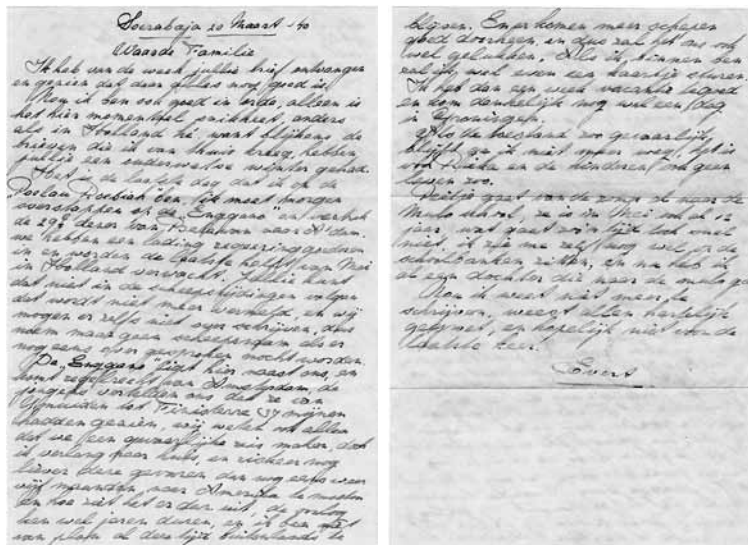 Soerabaja 20 Maart '40
Waarde Familie
Ik heb van de week jullie brief ontvangen
en gezien dat daar alles nog goed is.
Nou ik ben ook goed in orde, alleen is
het hier momenteel snikheet, anders
als in Holland hè, want blijkens de
brieven die ik van thuis kreeg, hebben
jullie een ouderwetse winter gehad.
Het is de laatste dag dat ik op de
"Poelau Roebiah" ben, ik moet morgen
overstappen op de "Enggano" en vertrek
de 29e dezer van Belawan naar A'dam.
we hebben een lading regeeringsgoederen
in en worden de laatste helft van Mei
in Holland verwacht. Jullie kunt
dat niet in de scheepstijdingen volgen
dat wordt niet meer vermeld, en wij
mogen er zelfs niet over schrijven, dus
noem maar geen scheepsnaam als er
nog eens over gesproken mocht worden.
De "Enggano" ligt hier naast ons, en
komt regelrecht van Amsterdam, de
jongens vertelden ons dat ze van
IJmuiden tot Finisterre 37 mijnen
hadden gezien, wij weten ook allen
dat we een gevaarlijke reis maken, doch
ik verlang naar huis, en riskeer nog
liever deze gevaren dan nog eens weer
vijf maanden naar Amerika te moeten
en hoe ziet het er dan uit, de oorlog
kan wel jaren duren, en ik ben niet
van plan al deze tijd buitenlands te
blijven. En er komen meer schepen
goed doorheen, en dus zal het ons ook
wel gelukken. Als ik binnen ben
zal ik wel even een kaartje sturen.
Ik heb dan een week vacantie tegoed
en kom denkelijk nog wel een dag
in Groningen.
Als de toestand zoo gevaarlijk
blijft ga ik niet meer weg, het is
voor en de kinderen ook geen
leven zoo.
gaat van de zomer al naar de
Mulo school, ze is in Mei ook al 12
jaar, wat gaat zoo'n tijd toch snel
niet, ik zie me zelf nog wel op de
schoolbanken zitten, en nu heb ik
al een dochter die naar de mulo gaat
Nou ik weet niet meer te
schrijven, weest allen hartelijk
gegroet, en hopelijk niet voor de
laatste keer.
Evert